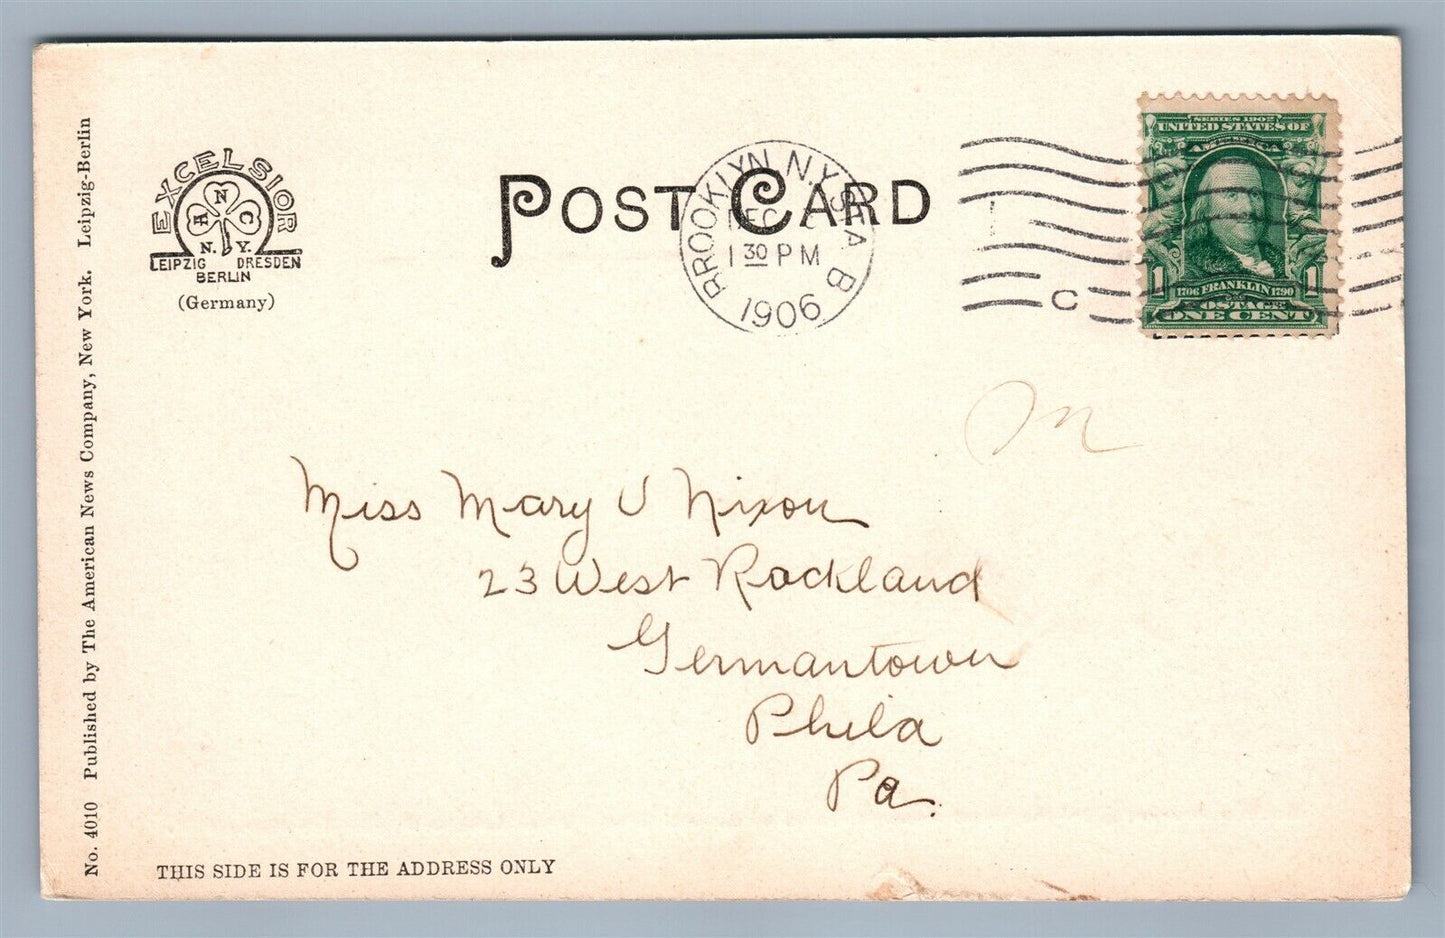 EXCELSIOR
ANC
N. Y.
LEIPZIG DRESDEN
BERLIN
(Germany)
POST CARD
BROOKLYN N.Y. STA B
DEC
1 30 PM
1906
C
SERIES 1902
UNITED STATES OF
AMERICA
1 1
1706 FRANKLIN 1790
POSTAGE
ONE CENT
m
Miss Mary U Nixon
23 West Rockland
Germantown
Phila
Pa.
THIS SIDE IS FOR THE ADDRESS ONLY
No. 4010 Published by The American News Company, New York. Leipzig-Berlin